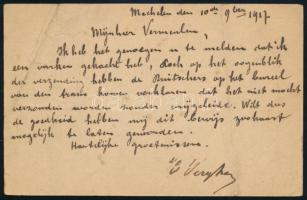 Mechelen den 10de 9ber 1917
Mijnheer Vermeulen,
Ik heb het genoegen u te melden dat ik
een varken gekocht heb, Doch op het oogenblik
der verzending hebben de Duitschers op het bureel
van den trein komen verklaren dat het niet mocht
verzonden worden zonder vrijgeleide. Wilt dus
de goedheid hebben mij dit bewijs zoohaast
mogelijk te laten geworden.
Hartelijke groetenissen.